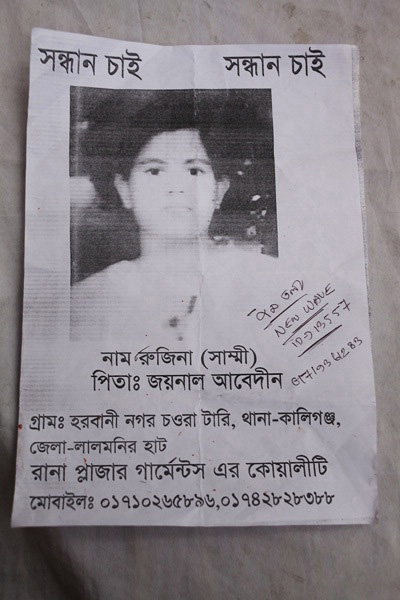 সন্ধান চাই সন্ধান চাই
NEW WAVE
নাম রুজিনা (সাম্মী)
পিতাঃ জয়নাল আবেদীন
গ্রামঃ হরবানী নগর চওরা টারি, থানা-কালিগঞ্জ,
জেলা-লালমনির হাট
রানা প্লাজার গার্মেন্টস এর কোয়ালীটি
মোবাইলঃ ০১৭১০২৬৫৮৯৬,০১৭৪২৮২৮৩৮৮